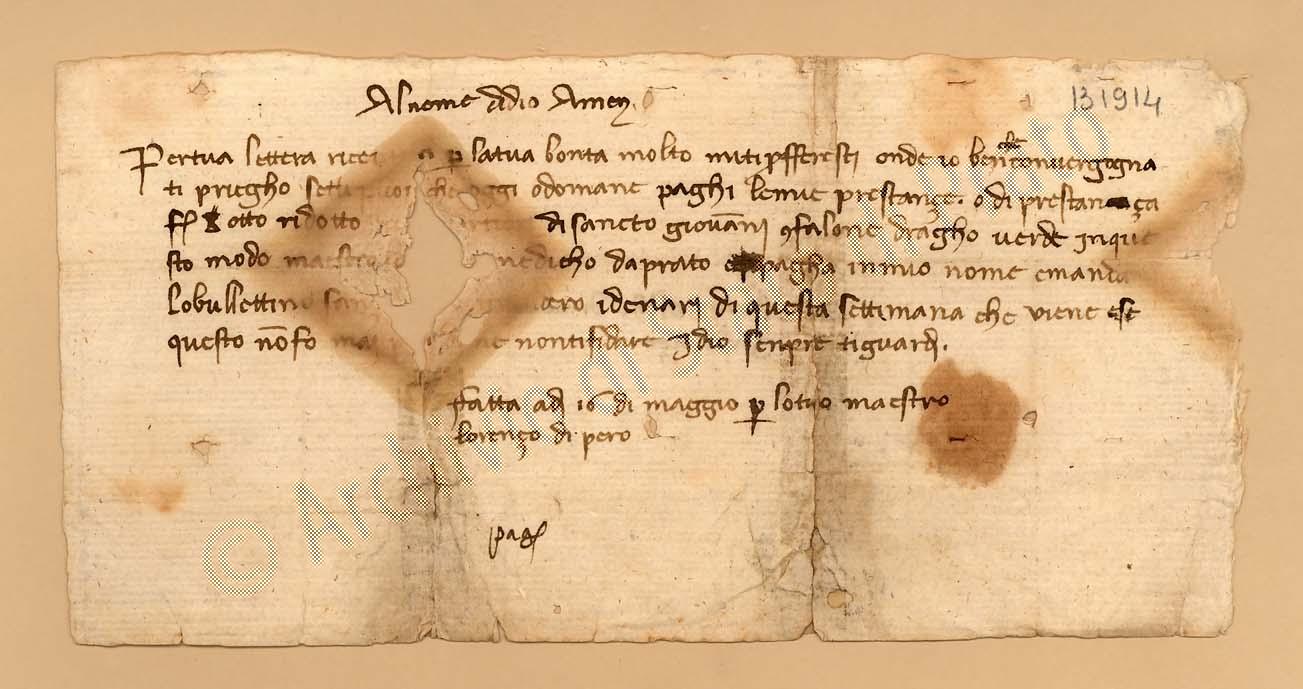 131914
Al nome di dio Amen.
Per tua lettera rice p la tua bonta molto miti pfferesti onde io ben convergogna
ti priegho se tti che oggi o domane paghi le mie prestançe. o di prestança
f otto ridotto di sancto giovãni gfalone dragho verde In que
sto modo maestro medicho da prato paghi in mio nome e manda
lo bullettino san i denari di questa settimana che viene e se
questo nõ fo ma non ti fidare Idio senpre ti guardi.
fatta adi 16 di maggio p lo tuo maestro
lorenço di pero
pag
© Archivio di Stato di Prato